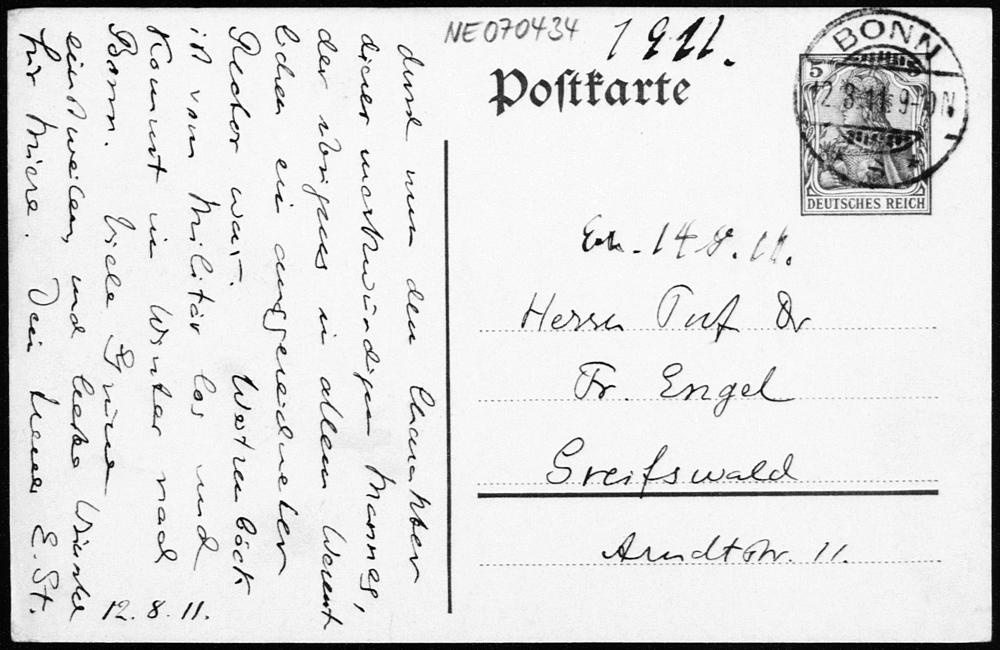 NE070434
1911.
Postkarte
BONN
12.8.11. 9-10N.
5
DEUTSCHES REICH
Erh. 14.8.11.
Herrn Prof Dr
Fr. Engel
Greifswald
Arndtstr. 11.
durch nun den Charakter
dieser merkwürdigen Mannes,
der übrigens in allem Wesent
lichen ein ausgezeichneter
Rector war. Weitzenböck
ist vom Militär los und
kommt im Winter nach
Bonn. Viele Grüsse
einstweilen, und beste Wünsche
für Miere. Dein treuer E. St.
12. 8. 11.